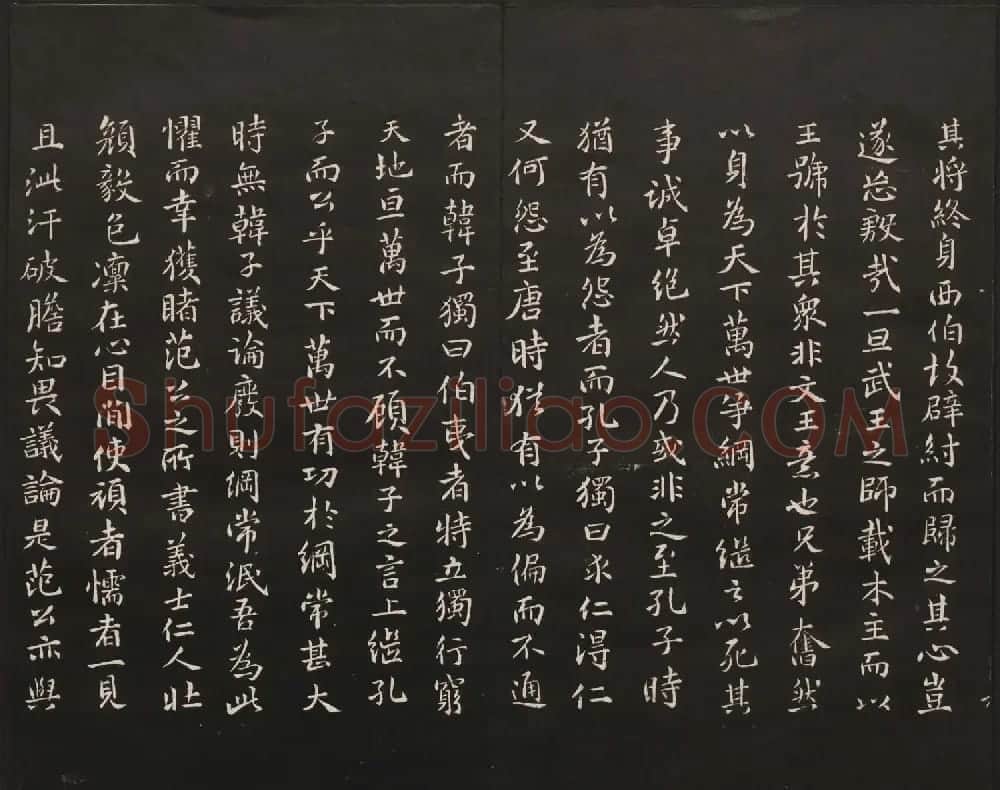 其將終身西伯故辟紂而歸之其心豈
遂忘殷哉一旦武王之師載木主而以
王號於其衆非文王意也兄弟奮然
以身為天下萬世爭綱常繼之以死其
事誠卓絕然人乃或非之至孔子時
猶有以為怨者而孔子獨曰求仁得仁
又何怨至唐時猶有以為偏而不通
者而韓子獨曰伯夷者特立獨行窮
天地亘萬世而不顧韓子之言上繼孔
子而公乎天下萬世有功於綱常甚大
時無韓子議論廢則綱常泯吾為此
懼而幸獲睹范公之所書義士仁人壯
顏毅色凜在心目間使頑者懦者一見
且泚汗破膽知畏議論是范公亦與
Shufaziliao.COM